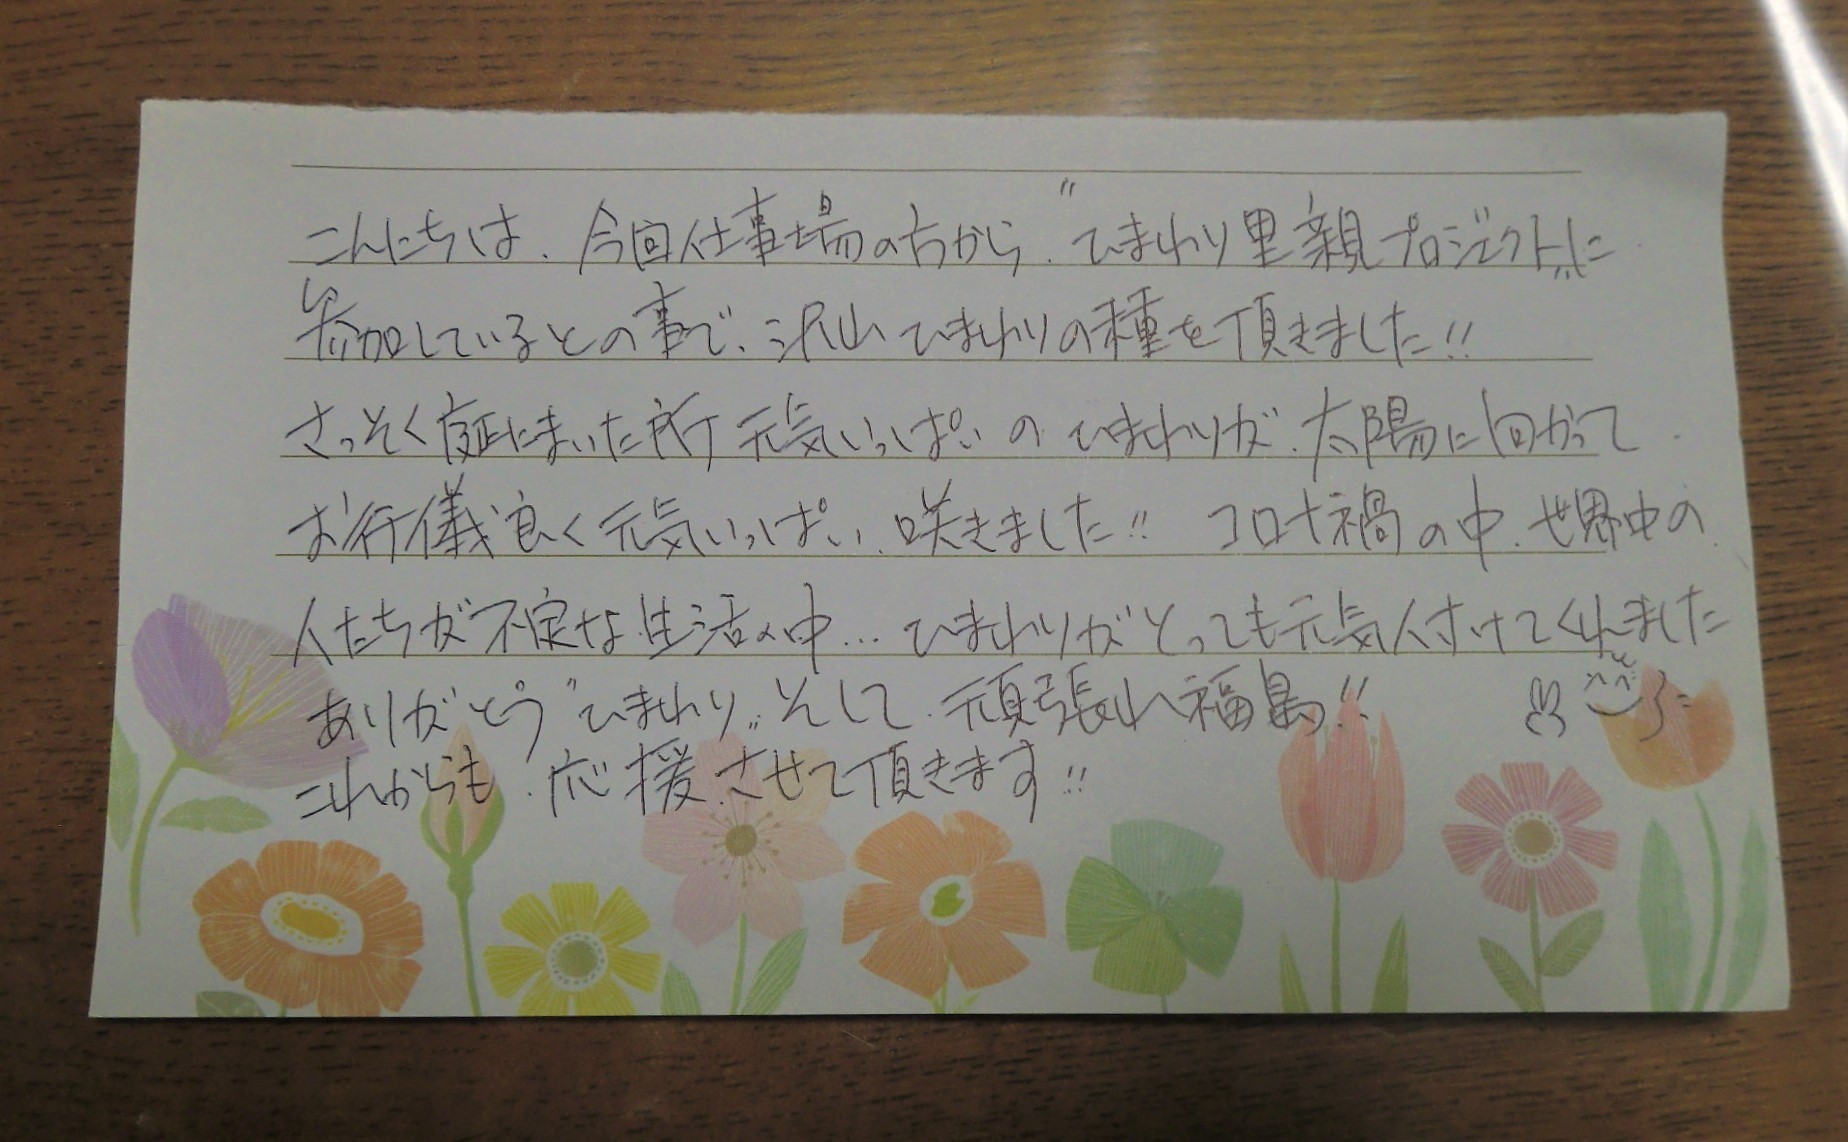 こんにちは、今回仕事場の方から、"ひまわり里親プロジェクト"に
参加しているとの事で、沢山ひまわりの種を頂きました!!
さっそく庭にまいた所元気いっぱいのひまわりが、太陽に向かって
お行儀良く元気いっぱい、咲きました!! コロナ禍の中、世界中の
人たちが不定な生活の中…ひまわりがとっても元気付けてくれました
ありがとう"ひまわり"そして、頑張れ福島!!
これからも、応援させて頂きます!!